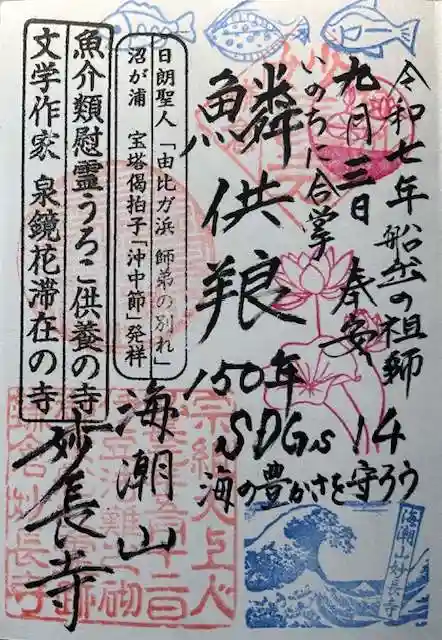 令和七年 船出の祖師
九月三日 奉安
いのちに合掌
鱗供養
150年
SDGs 14
海の豊かさを守ろう
日朗聖人「由比ガ浜 師弟の別れ」
沼が浦 宝塔偈拍子「沖中節」発祥
魚介類慰霊うろこ供養の寺
文学作家 泉鏡花滞在の寺
海潮山
妙長寺
海潮山妙長寺